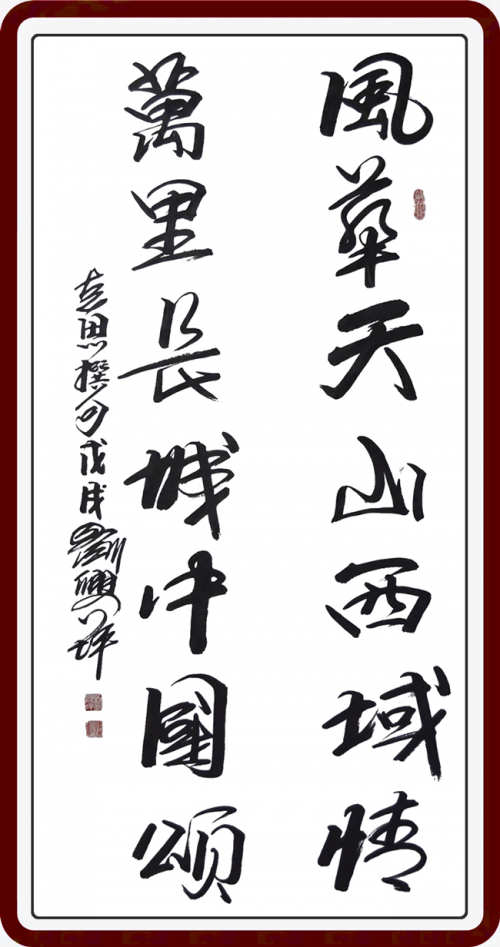 風華天山西域情
萬里長城中國頌
袁思撰句戊戌劉興祥